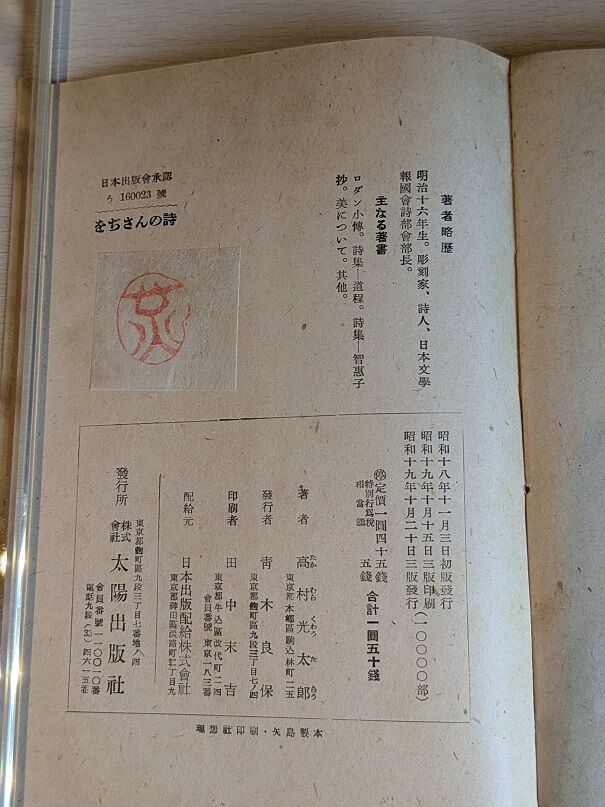 著者略歷
明治十六年生。彫刻家、詩人、日本文學
報國會詩部會部長。
主なる著書
ロダン小傳。詩集—道程。詩集—智惠子
抄。美について。其他。
日本出版會承認
う 160023 號
をぢさんの詩
昭和十八年十一月三日初版發行
昭和十九年十月十五日三版印刷
昭和十九年十月二十日三版發行(一〇〇〇〇部)
㊞定價一圓四十五錢
特別行爲稅
相當額
五錢
合計一圓五十錢
著者 高村光太郎
たか むら くわう た らう
東京都本鄕區駒込林町二五
發行者 靑木良保
東京都麴町區九段三丁目七ノ四
印刷者 田中末吉
東京都牛込區改代町二四
會員番號東京一八三番
配給元 日本出版配給株式會社
東京都神田區淡路町二丁目九
東京都麴町區九段三丁目七番地ノ四
發行所 株式會社 太陽出版社
會員番號一一〇〇〇番
電話九段(33)四六一五番
理想社印刷・矢島製本